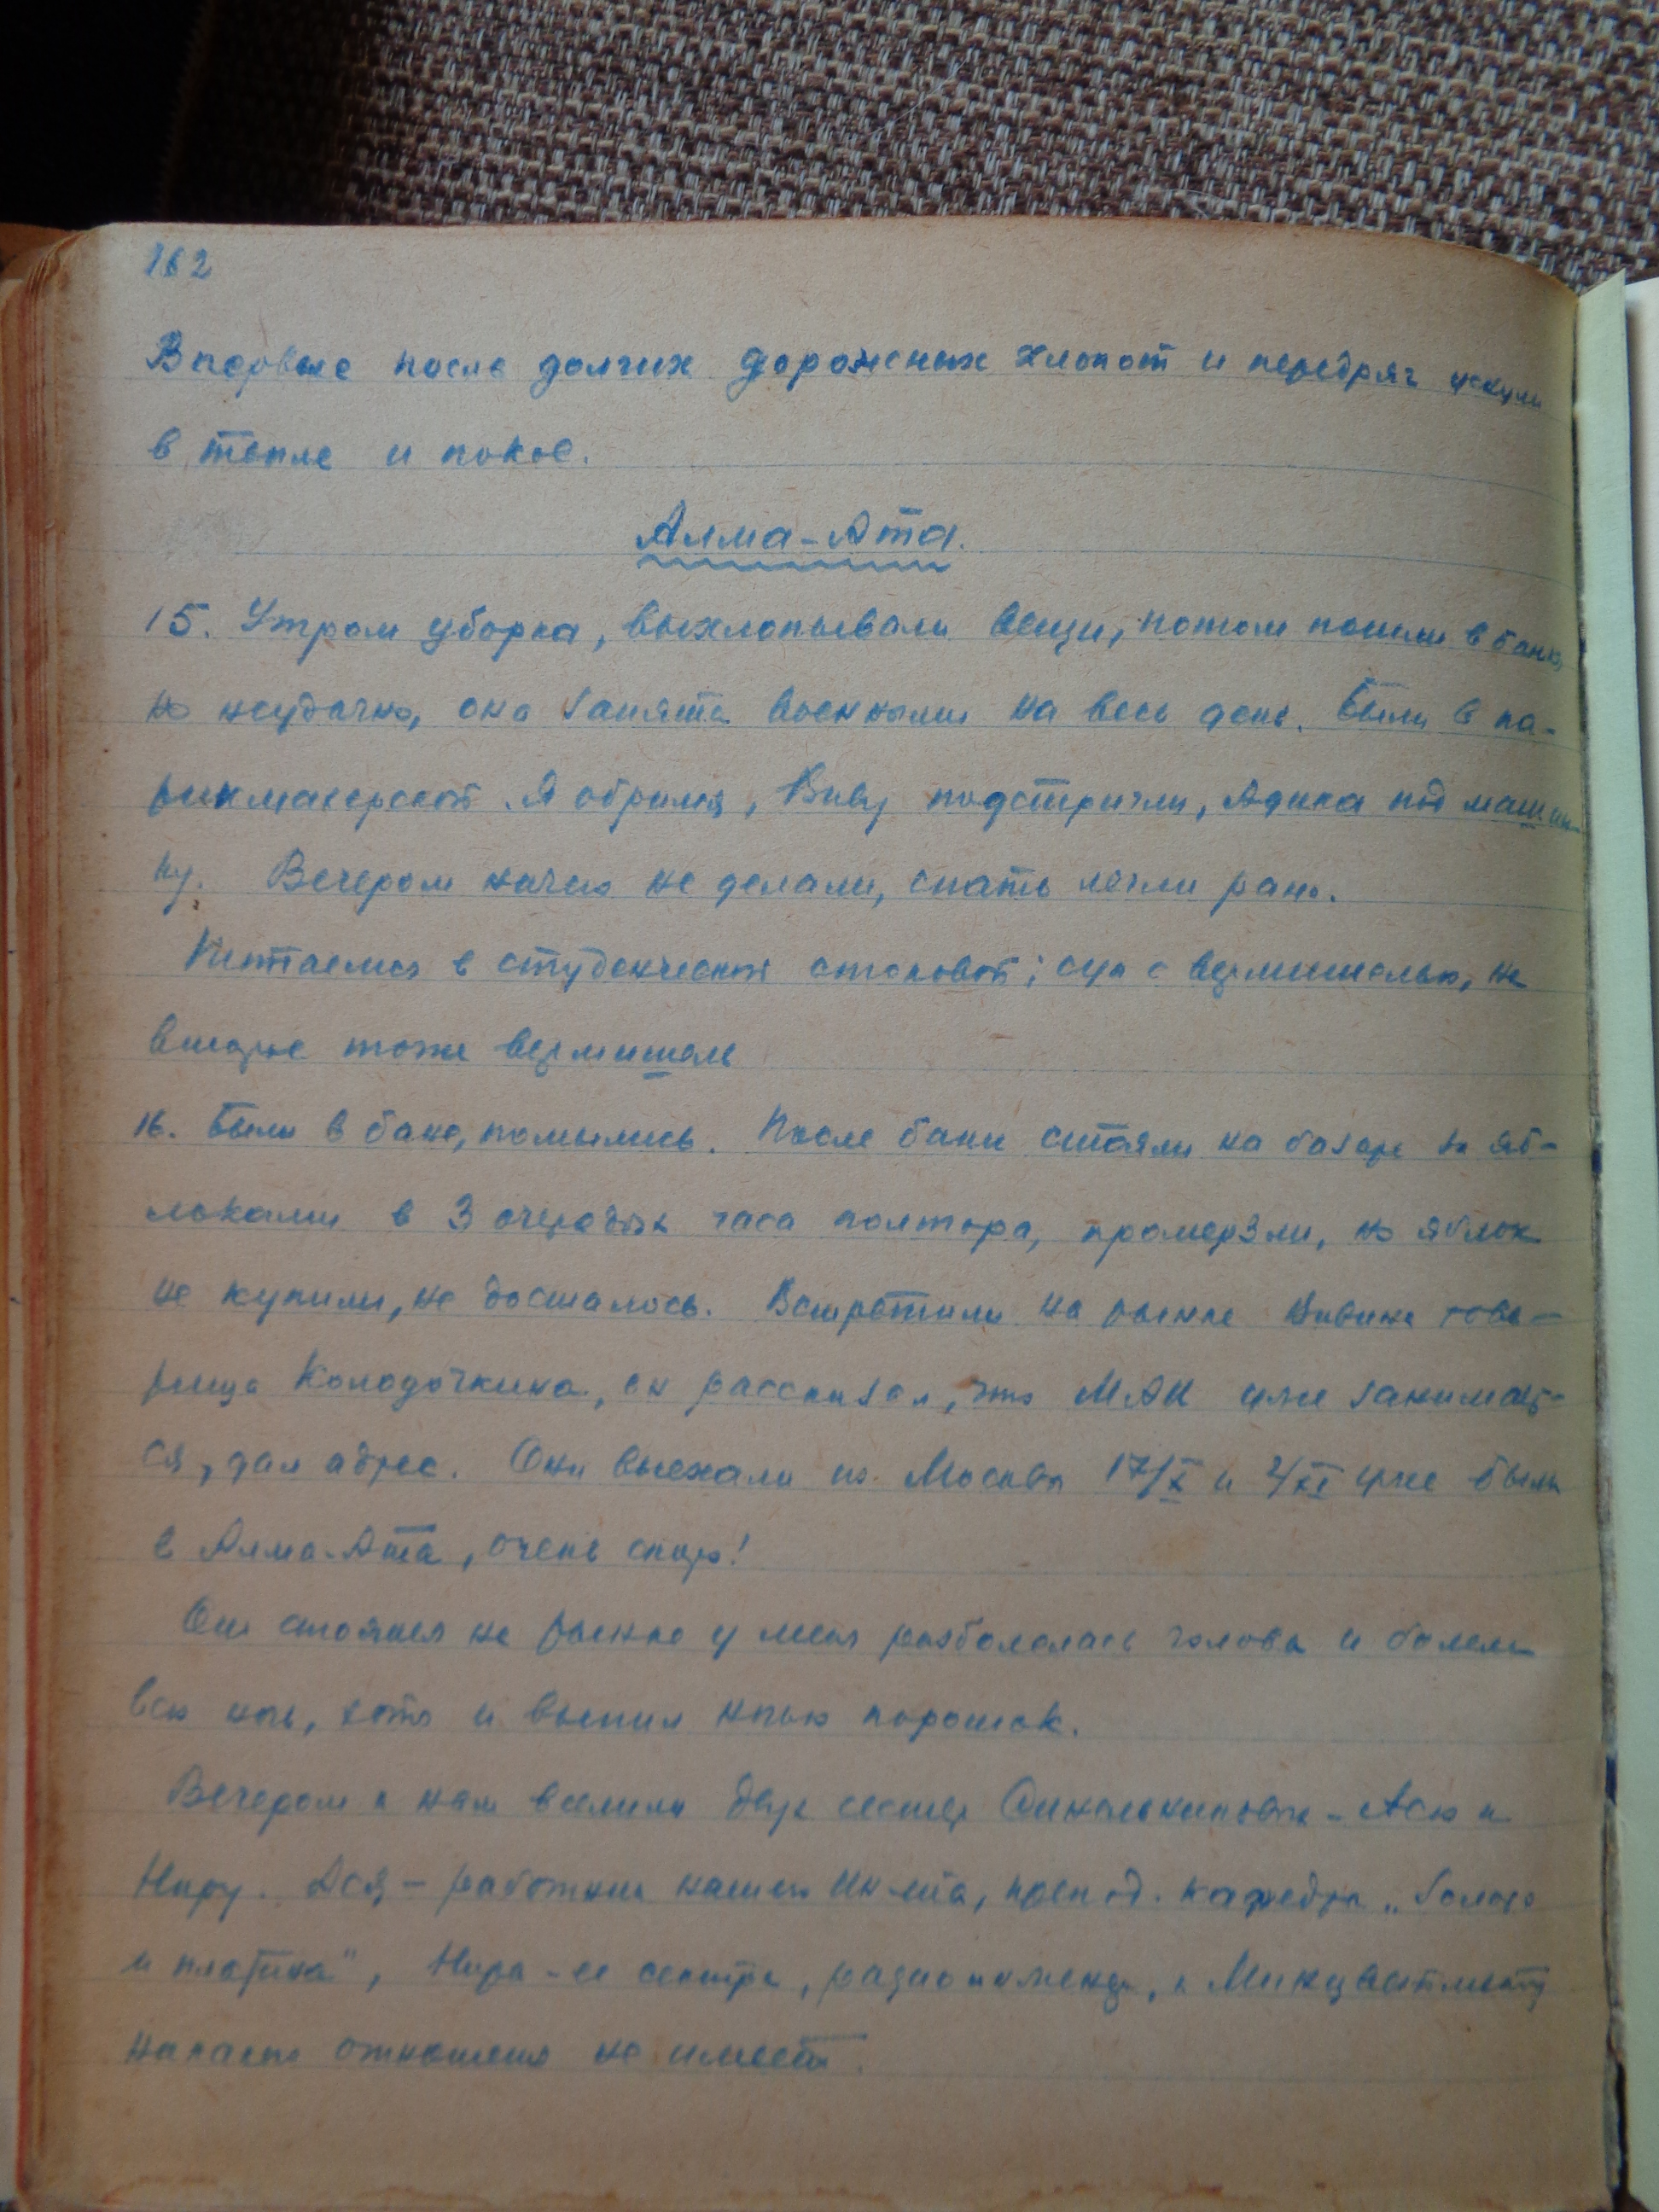 162
Впервые после долгих дорожных хлопот и передряг уснули
в тепле и покое.
Алма-Ата.
15. Утром уборка, выхлопывали вещи, потом пошли в баню,
но неудачно, она занята военными на весь день. Были в па-
рикмахерской. Я обрился, Виву подстригли, Адика под машин-
ку. Вечером ничего не делали, спать легли рано.
Питаемся в студенческой столовой; суп с вермишелью, на
второе тоже вермишель
16. Были в бане, помылись. После бани стояли на базаре за яб-
локами в 3 очередях часа полтора, промерзли, но яблок
не купили, не досталось. Встретили на рынке Вивина това-
рища Колодочкина, он рассказал, что МАИ уже занимает-
ся, дал адрес. Они выехали из Москвы 17/X и 2/XI уже были
в Алма-Ата, очень скоро!
От стояния на рынке у меня разболелась голова и болела
всю ночь, хотя и выпил ночью порошок.
Вечером к нам вселили двух сестер - Асю и
Нару. Ася - работник нашего ин-та, препод. кафедры „Золота
и платина", Нара - ее сестра, радиоинженер, к Минцветмету
никакого отношения не имеет.